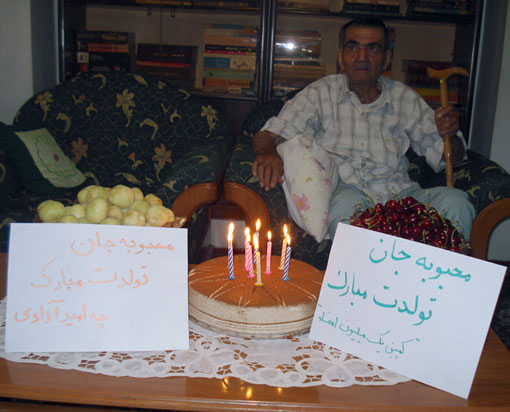 محبوبه جان
تولدت مبارک
به امید آزادی
محبوبه جان
تولدت مبارک
کمپین یک میلیون امضاء